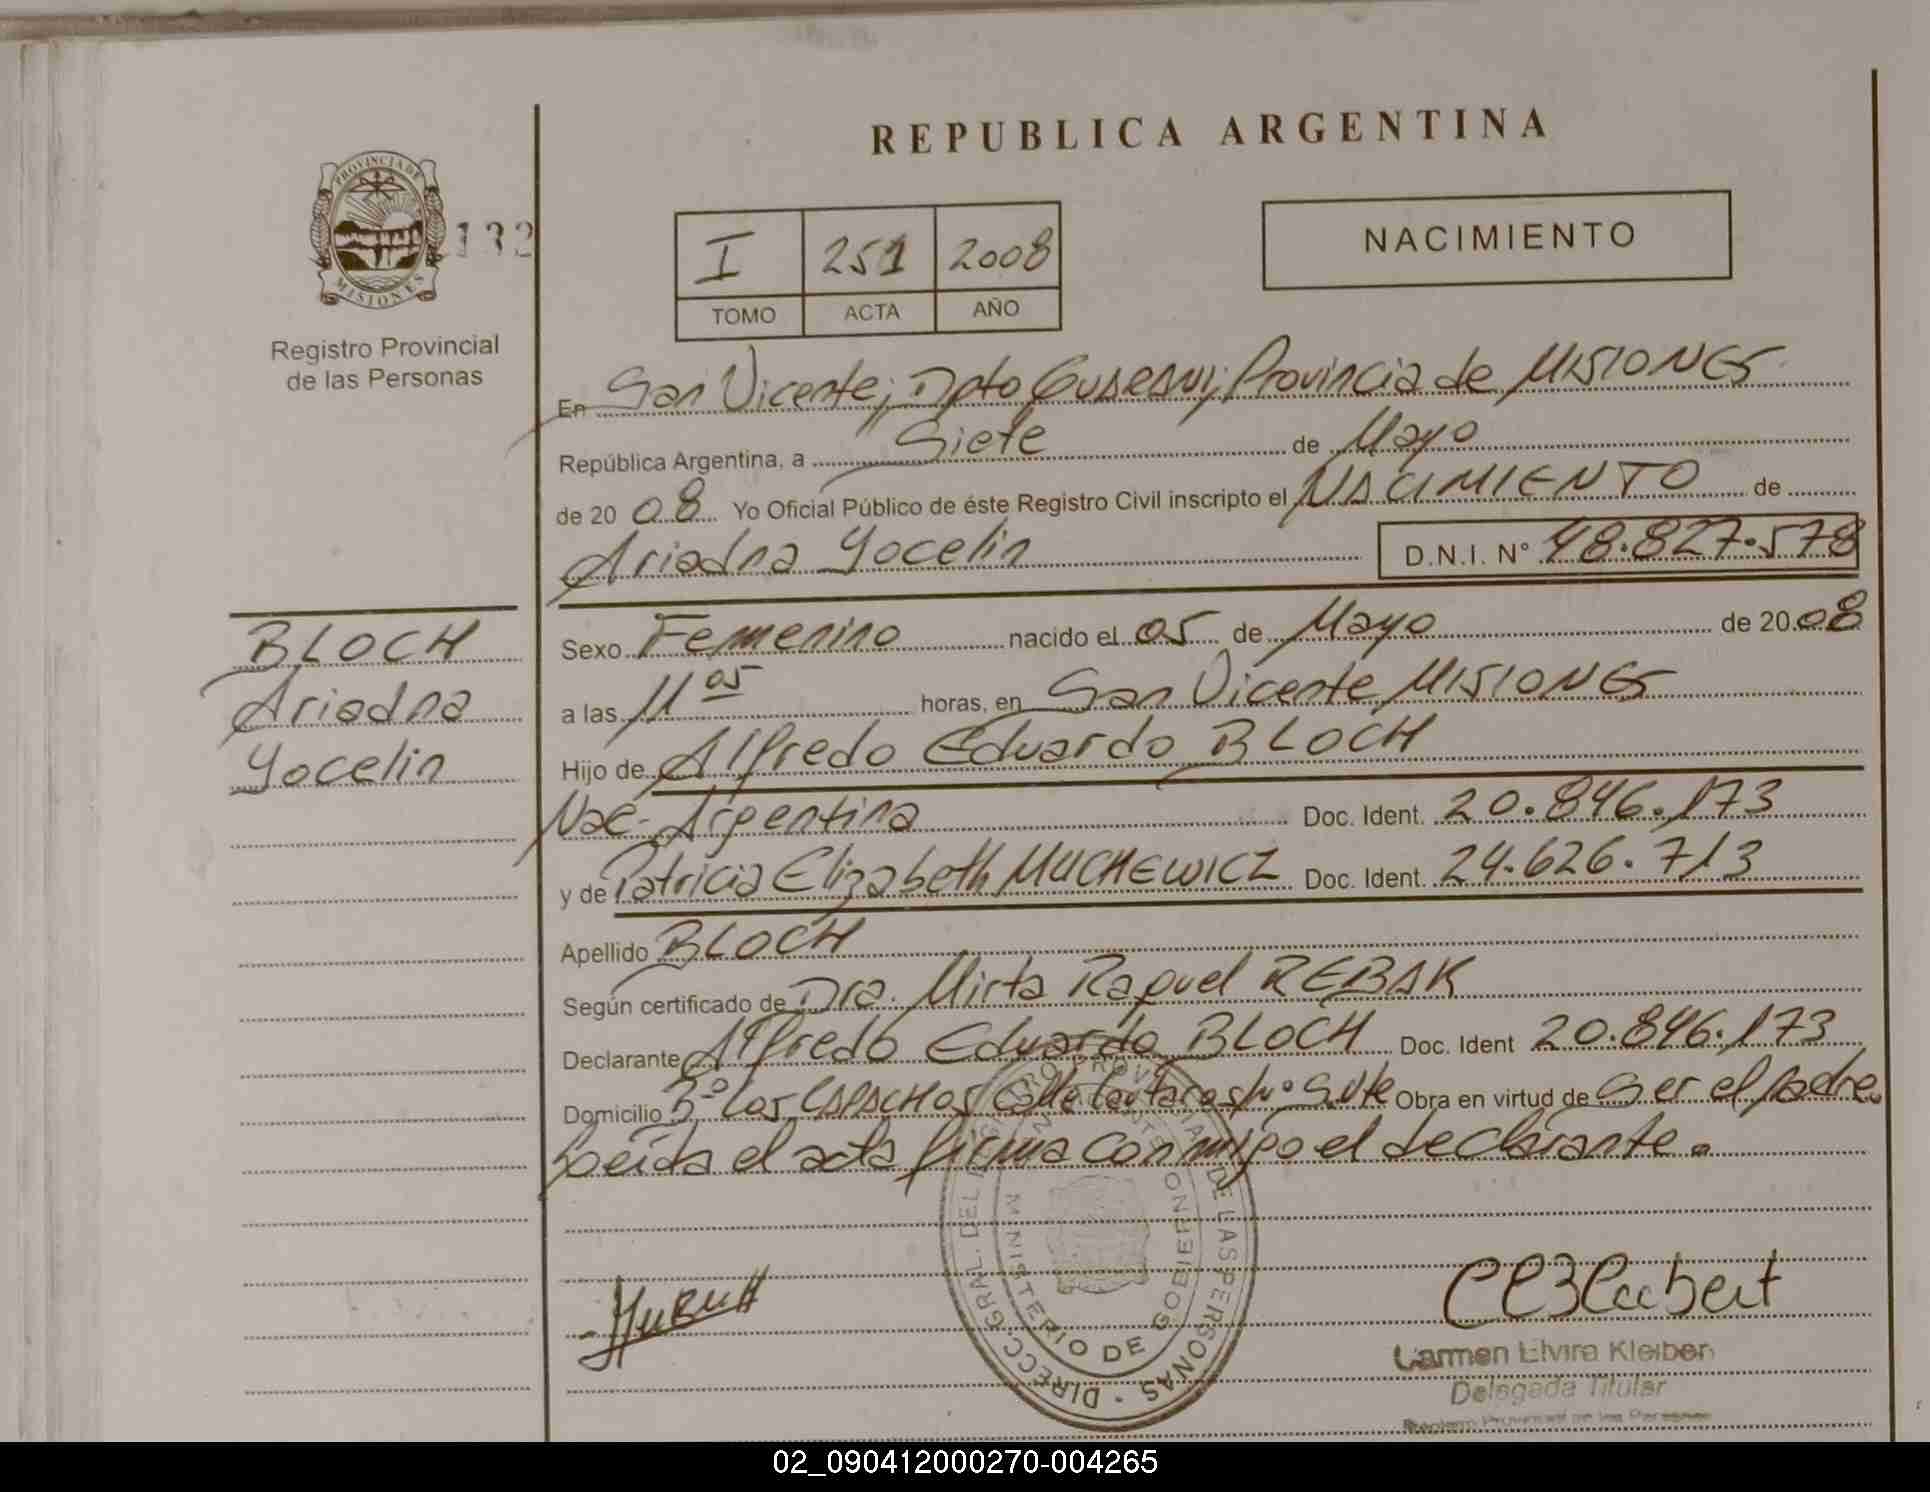 REPUBLICA ARGENTINA
PROVINCIA DE
MISIONES
132
Registro Provincial
de las Personas
I 251 2008
TOMO ACTA AÑO
NACIMIENTO
En San Vicente; Dpto Guarani; Provincia de MISIONES
República Argentina, a Siete de Mayo
de 20 08 Yo Oficial Público de éste Registro Civil inscripto el NACIMIENTO de
Ariadna Yocelin D.N.I. N° 48.827.578
BLOCH
Ariadna
Yocelin
Sexo Femenino nacido el 05 de Mayo de 20 08
a las 11 05 horas, en San Vicente MISIONES
Hijo de Alfredo Eduardo BLOCH
Nac. Argentina Doc. Ident. 20.846.173
y de Patricia Elizabeth MUCHEWICZ Doc. Ident. 24.626.713
Apellido BLOCH
Según certificado de Dra. Mirta Raquel REBAK
Declarante Alfredo Eduardo BLOCH Doc. Ident 20.846.173
Domicilio Bº Los LAPACHOS Calle S. Vte Obra en virtud de Ser el padre.
Leída el acta firma conmigo el declarante.
DIRECC. GRAL. DEL REGISTRO PROVINCIAL DE LAS PERSONAS
MINISTERIO DE GOBIERNO
Carmen Elvira Kleiber
Delegada Titular
Registro Provincial de las Personas
02_090412000270-004265